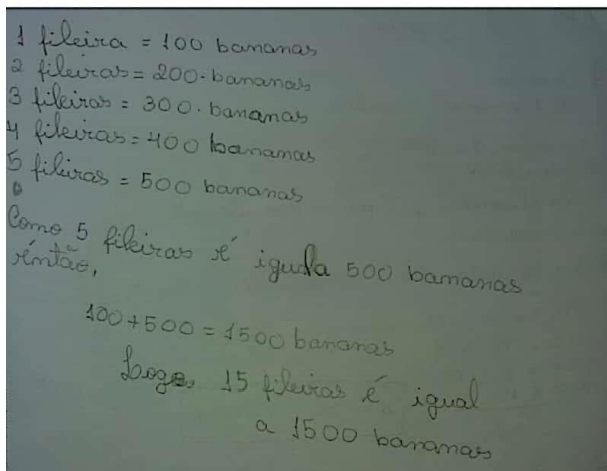 1 fileira = 100 bananas
2 fileiras = 200. bananas
3 fileiras = 300. bananas
4 fileiras = 400 bananas
5 fileiras = 500 bananas
Como 5 fileiras é iguda 500 bananas
então,
100 + 500 = 1500 bananas
Logo, 15 fileiras é igual
a 1500 bananas